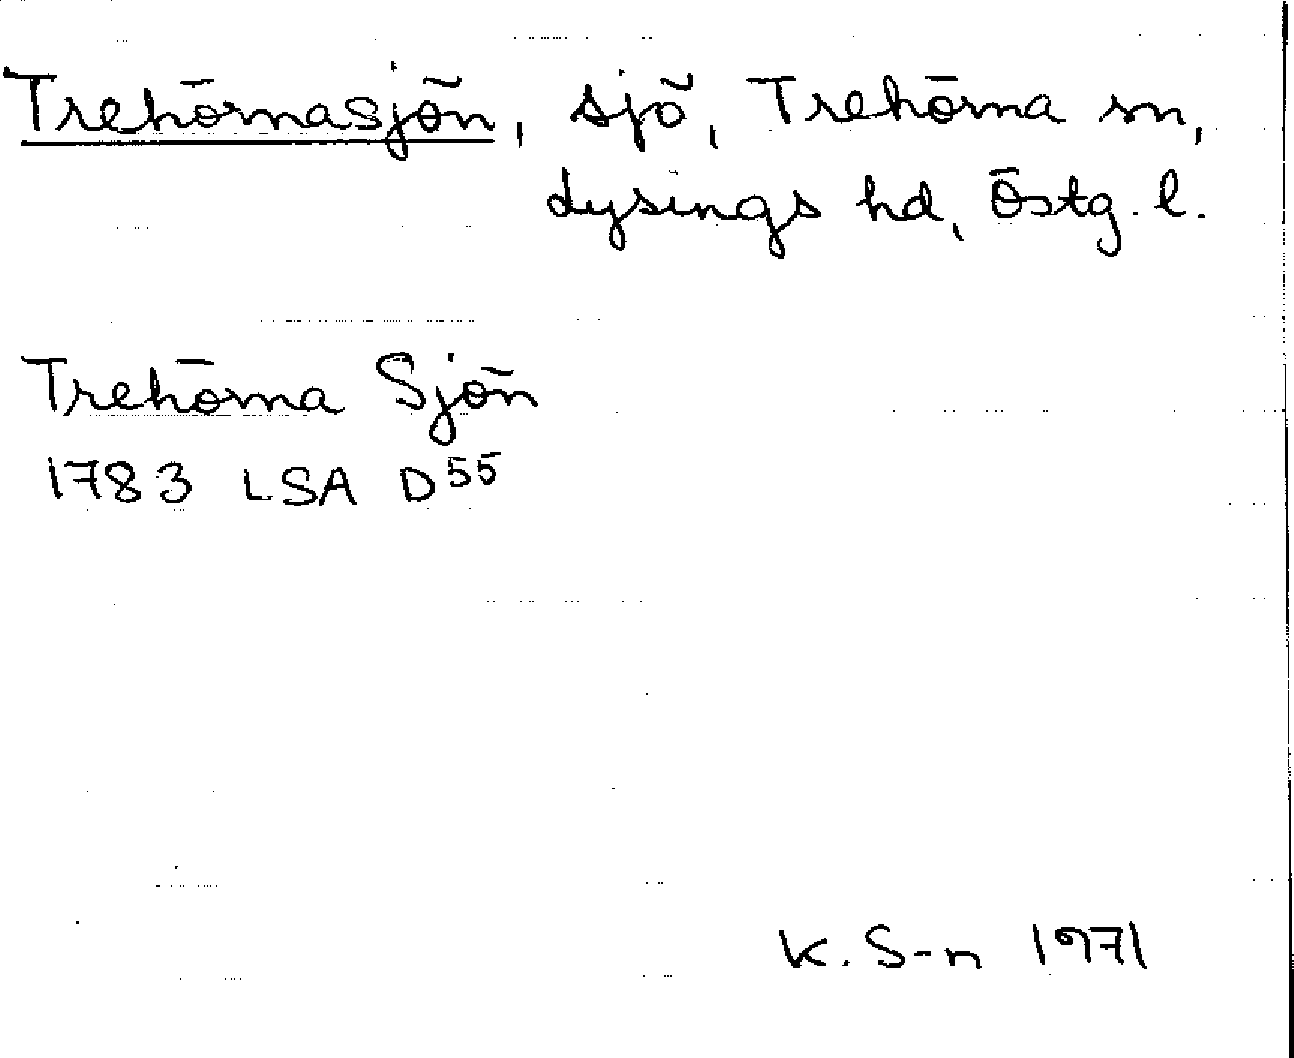 Trehörnasjön, sjö, Trehörna sn,
Lysings hd, Östg. l.
Trehörna Sjön
1783 LSA D55
K. S-n 1971